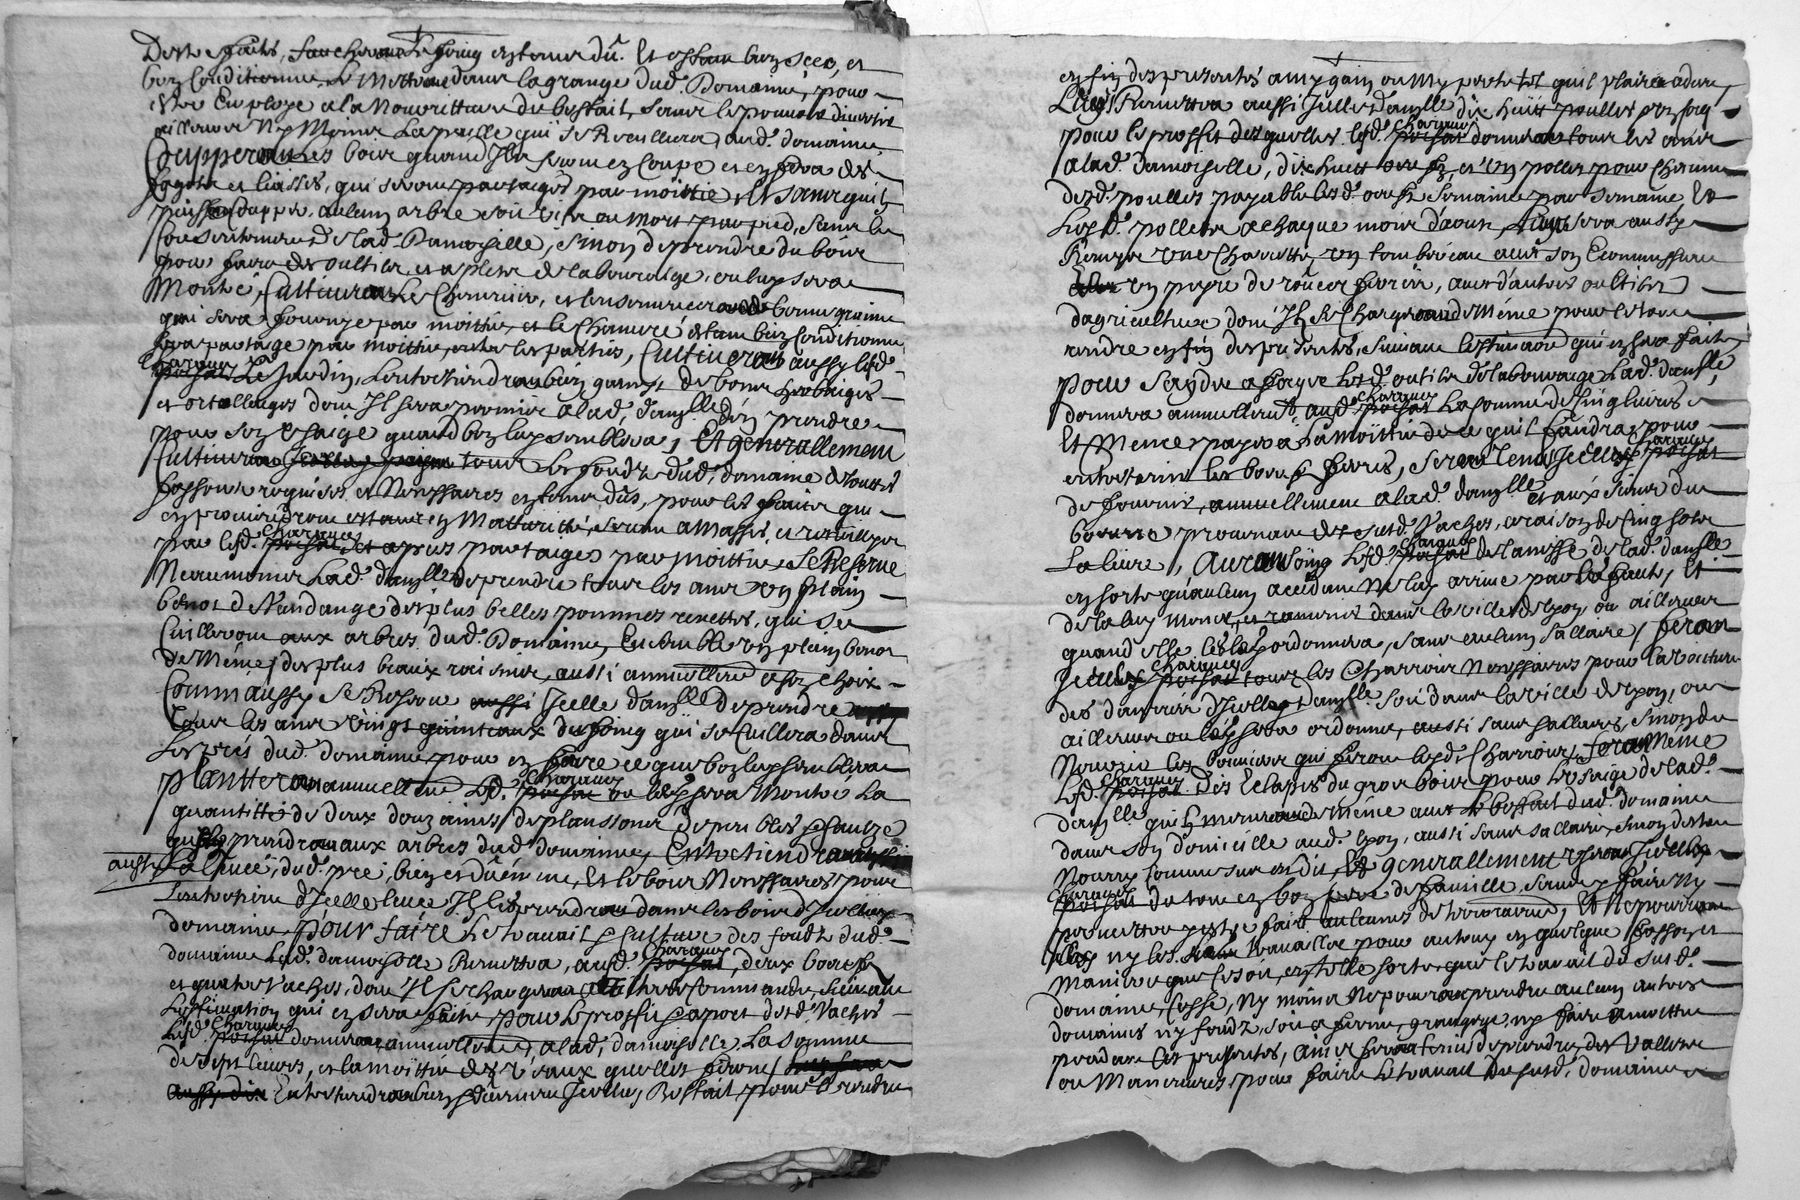 Estre faits, faucheront le foing en temps du. Et estant bien secq, et
bien Conditionné, Le Mettront dans la grange dud. Domaine, pour
estre Employé a la Nourritture du bestail, sans le pouvoir divertir
ailleurs Ny Moins La paille qui se Recuillira aud. domaine,
Coupperont Les bois quand Ils seront en Coupe et en fera des
fagots et liasses, qui seront partagés par moittié, Et sans qu'il
puisse Coupper, aulcun arbre soit vif ou mort par pied, sans le
Consentement de lad. Damoiselle, sinon de prendre du bois
pour faire des oultils, et aplets de labourage, ou luy sera
Montré, Cultiveront Le Chenevier, et l'ensemenceront de bonne graine
qui sera fournye par moittié, et le Chanvre estant bien Conditionné
sera partagé par moittié, entre les parties, Cultiveront aussy lesd.
Charques Le Jardin, L'entretiendront bien garny, de bons herbages
et ortollages dont Il sera permis a lad. damlle d'en prendre
pour son usage quand bon luy semblera, Et generallement
Cultiveront tous les fondz dud. domaine de toutes
fassons requises et Necessaires en temps dus, pour les fruits qui
en proviendront estant en Maturité, seront amassés, et recuillys
par lesd. Charques et apres partagés par moittié, Se Reserve
Neanmoins Lad. damlle de prendre tous les ans un plain
benot de Vandange des plus belles pommes renettes, qui se
Cuilleront aux arbres dud. Domaine, Ensemble un plain benot
de Même, des plus beaux raisins, aussi annuellemt a son choix
Comm'aussy se Reserve Icelle damlle de prendre
tous les ans vingt quintaux du foing qui se Cuillera dans
les prés dud. domaine pour en faire ce que bon luy semblera
Plantteront annuellemt Lesd. Charques ou leur sera Montré La
quantitté de deux douzaines de plansons de peuples & saulze
qu'ils prendront aux arbres dud. domaine, Entretiendront
aussy La Levée, dud. pré, bien et dûement, Et le bois Necessaires pour
L'entretien d'Icelle levée Ils le prendront dans les bois d'Icelluy
domaine, pour faire Le travail & Culture des fondz dud.
domaine Lad. damoiselle Remettra, ausd. Charques, deux boeufs
et quatre Vaches, dont Ils se chargeront suivant
L'estimation qui en sera faitte, pour le proffit & aport desd. Vaches
Lesd. Charques donneront, annuellement, a lad. damoiselle, La somme
de sept livres, et la moittié des veaux quelles feront
Entretiendront bien & duement Iceluy, Bestail pour le rendre
en fin des presentes a my gain ou My perte tel qu'il plaira a dieu,
Leur Remettra aussi Icelle damlle dix huit poulles
pour le proffit desquelles lesd. Charques donneront tous les ans
a lad. damoiselle, dix huit oeufs, et un pollet pour Chacune
desd. poulles payable lesd. oeufs Semaine par semaine, Et
Lesd. pollets a chaque mois d'aoust, Leur sera aussy
Remys une Charrette, un tombereau avec son
un payre de roues ferrées, avec d'autres oultils
d'agriculture dont Ils se Chargeront de Même pour les tous
rendre en fin des presentes, suivant l'estimation qui en sera faite
pour l'aydre a payer lesd. outils de labourage Lad. damlle
donnera annuellemt ausd. Charques La somme de Cinq livres
Et Même payera La moittié de ce qu'il faudra pour
entretenir les boeufs ferrés, seront tenus Iceulx Charques
de fournir, annuellement a lad. damlle
beurre provenant des susd. Vaches, a raison de Cinq sols
La livre, Auront soing Lesd. Charques de l'anesse de lad. damlle
en sorte qu'aulcun accidant Ne luy arrive par leur faute, Et
de la luy mener, et ramener dans la ville de lyon, ou ailleurs
quand elle le leur ordonnera, sans aulcun sallaire, feront
Iceulx Charques tous les Charrois Necessaires pour la voiture
des danrées d'Icelle damlle soit dans la ville de lyon, ou
ailleurs ou leur sera ordonné, aussi sans sallaires, sinon de
Nourrir les bouviers qui feront lesd. Charrois, feront Même
Lesd. Charques Des Eclapes du gros bois pour l'usage de lad.
damlle qu'Ils meneront de même avec le bestail dud. domaine
dans son domicille aud. lyon, aussi sans sallaire, sinon d'estre
Nourry comme sus est dit, Et generallement useront Iceulx
Charques du tout en bon pere de famille, sans y faire Ny
permettre y estre fait aulcunes deteriorations, Et Ne pourront
ny les travailler pour autruy en quelque fasson et
Maniere que ce soit, en telle sorte, que le travail du susd.
domaine, Cesse, Ny moins Ne pourront prendre aulcun autres
domaines ny fondz, soit a ferme, grangeage, ny faire a moittié
pendant les presentes, ains seront tenus de prendre des Vallets
ou Manoeuvres, pour faire Le travail du susd. domaine